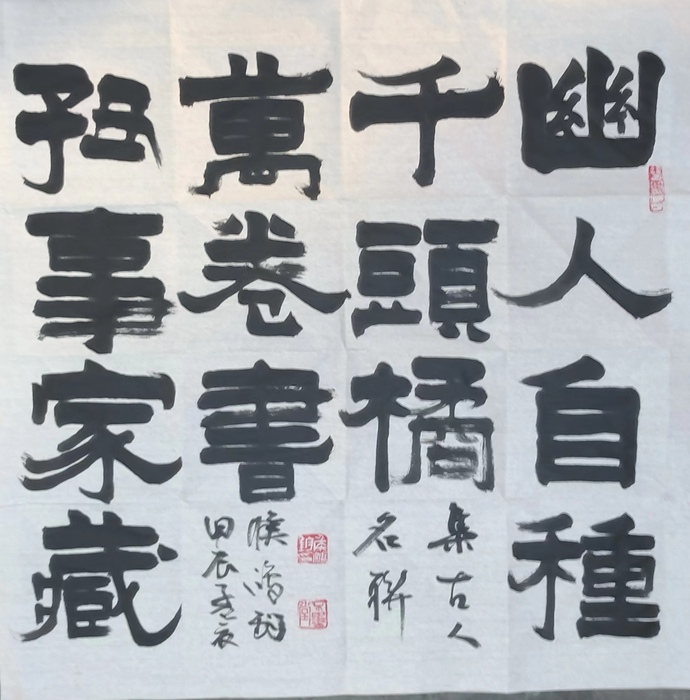 幽人自種
千頭橘
集古人
名聯
好事家藏
萬卷書
甲辰